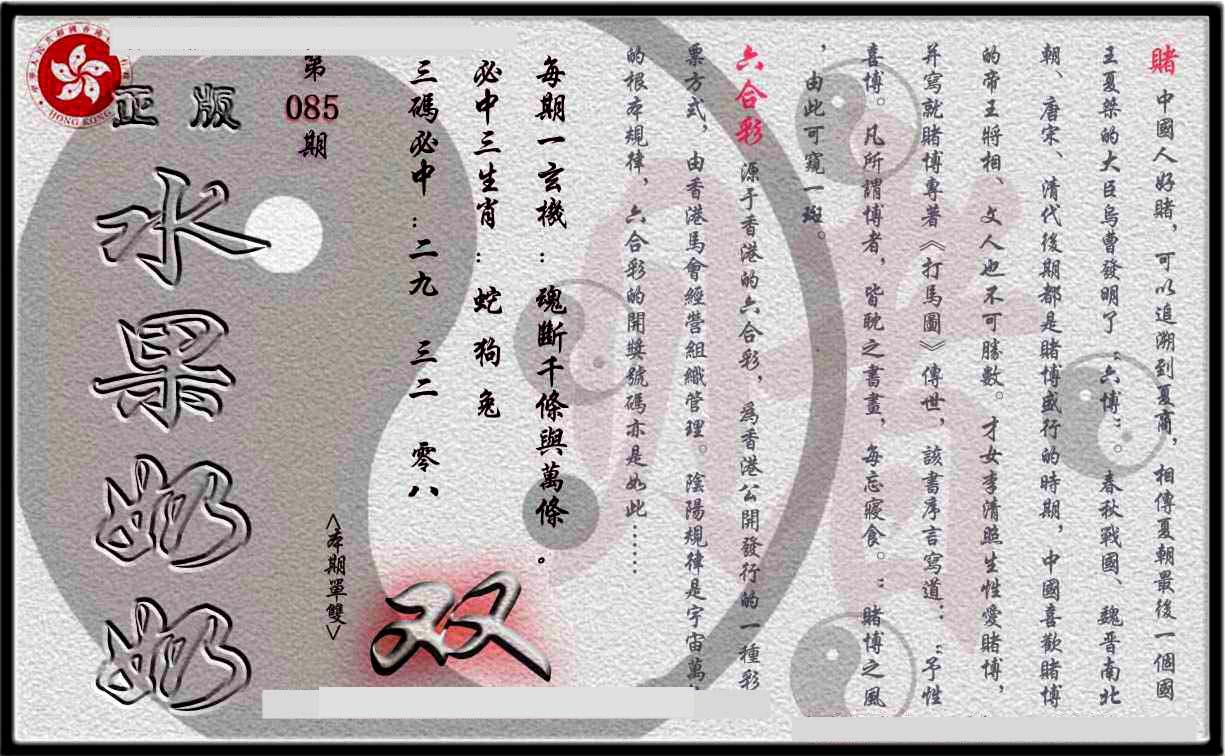 賭 中國人好賭，可以追溯到夏商，相傳夏朝最後一個國
王夏桀的大臣烏曹發明了“六博”。春秋戰國、魏晉南北
朝、唐宋、清代後期都是賭博盛行的時期，中國喜歡賭博
的帝王將相、文人也不可勝數。才女李清照生性愛賭博，
并寫就賭博專著《打馬圖》傳世，該書序言寫道：“予性
喜博。凡所謂博者，皆耽之書畫，每忘寢食。”賭博之風
，由此可窺一斑。
六合彩 源于香港的六合彩，為香港公開發行的一種彩
票方式，由香港馬會經營組織管理。陰陽規律是宇宙萬
的根本規律，六合彩的開獎號碼亦是如此……
每期一玄機：魂斷千條與萬條。
必中三生肖：蛇狗兔
三碼必中：二九 三二 零八
<本期單雙>
双
第
085
期
正版
水果奶奶
HONG KONG